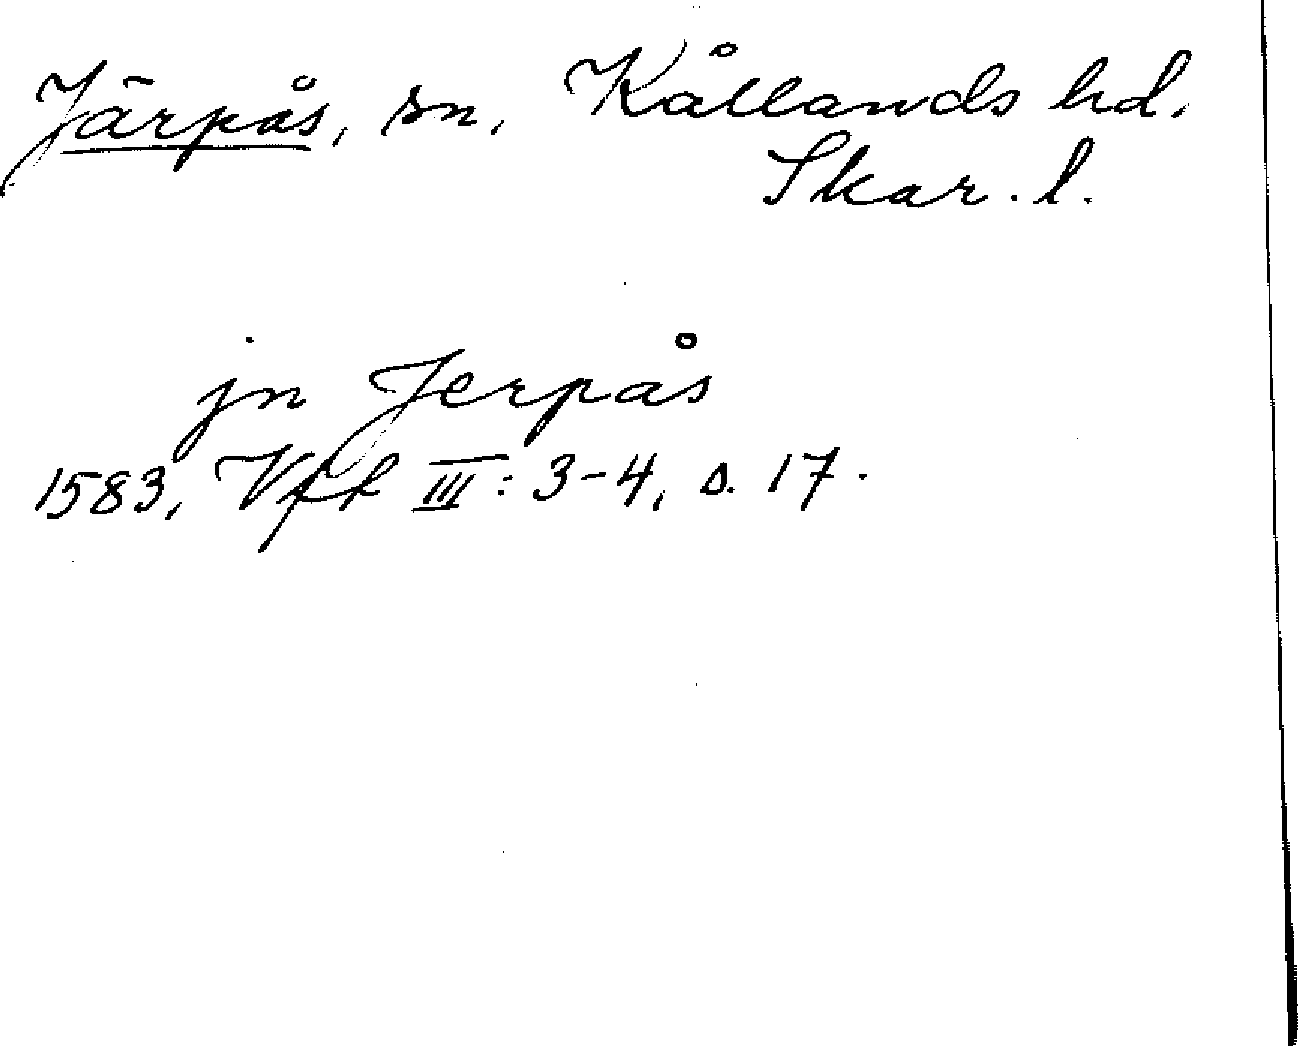 Järpås, sn, Kållands hd.
Skar. l.
jn Jerpås
1583, Vfk III: 3-4, s. 17.